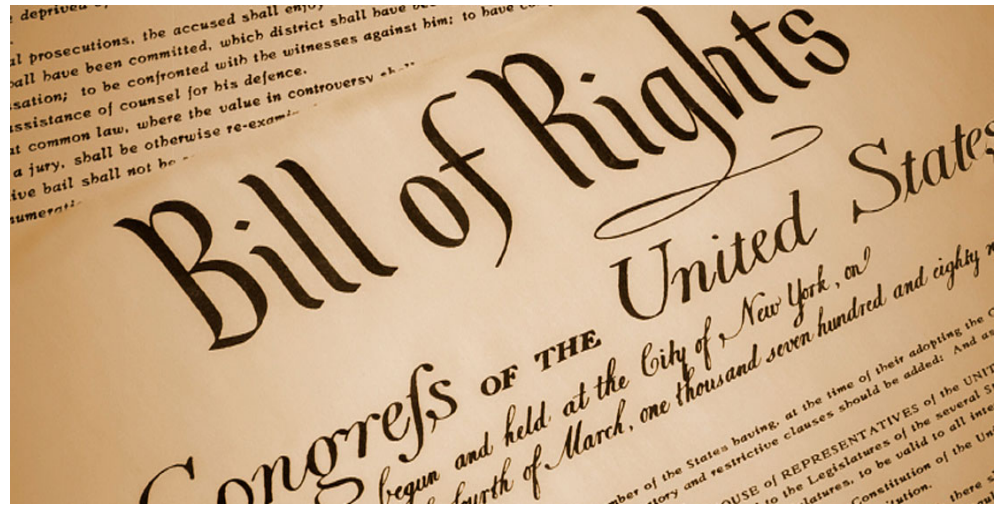 deprived
al prosecutions, the accused shall enjoy
all have been committed, which district shall have
sation; to be confronted with the witnesses against him; to have
assistance of counsel for his defence.
at common law, where the value in controversy
a jury, shall be otherwise
ive bail shall not be
Bill of Rights
Congreſs OF THE United States
begun and held at the City of New York, on
fourth of March, one thousand seven hundred and eighty
mber of the States having, at the time of their adopting the
tory and restrictive clauses should be added: And as
OUSE of REPRESENTATIVES of the UNIT
to the Legislatures of the several S
latures, to be valid to all inte
Constitution of the Un
tution.
there